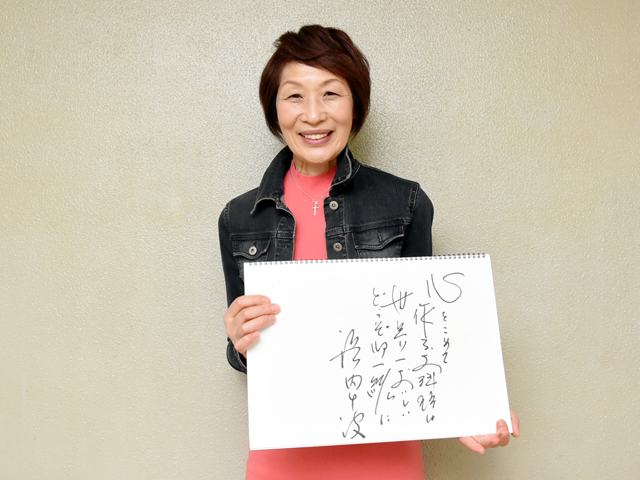 心をこめて
作るお料理は
世界一おいしい
どうぞ御一緒に
浜内千波